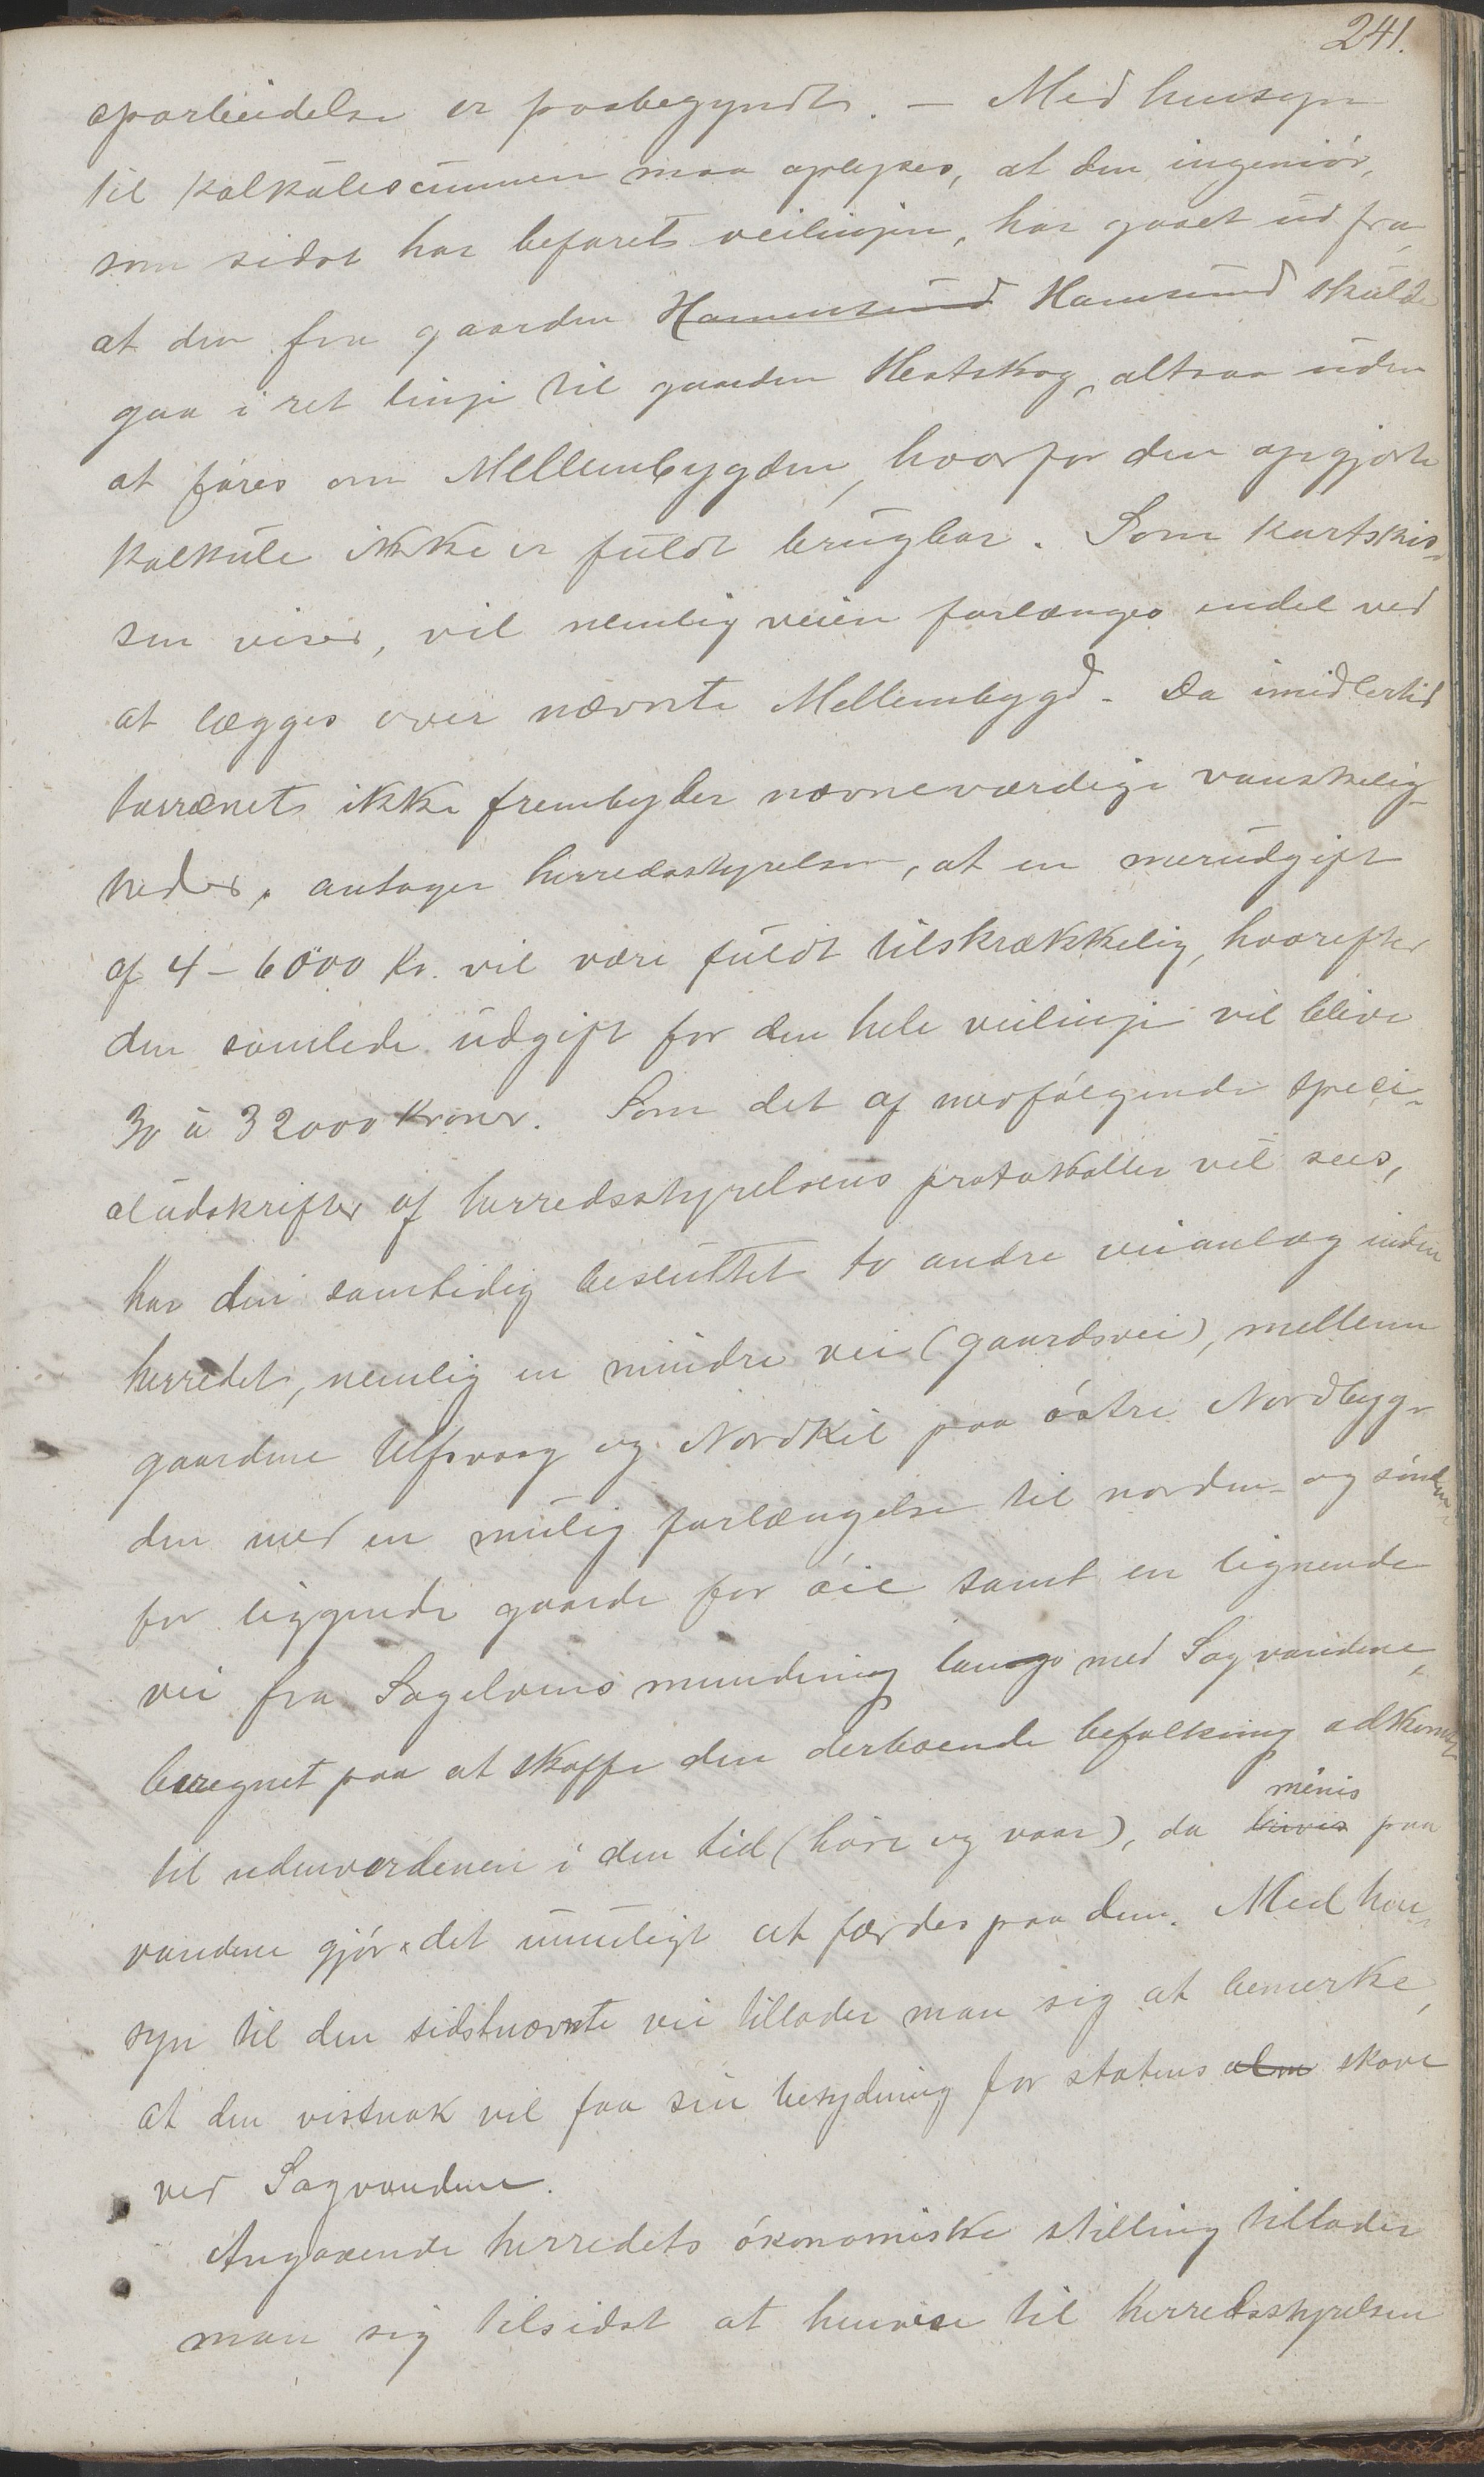 241.
oparbeidelse er paabegyndt. – Med hensyn
til kalkulesummen maa oplyses, at den ingeniør,
som sidst har befaret veilinjen, har gaaet ud fra,
at den fra gaarden Hammsund Hamsund skulde
gaa i ret linje til gaarden Hestskog, altsaa uden
at føres om Mellembygden, hvorfor den opgjorte
kalkule ikke er fuldt brugbar. Som kartskis-
sen viser, vil nemlig veien forlænges endel ved
at lægges over nævnte Mellembygd. Da imidlertid
terrænet ikke frembyder nævneværdige vanskelig-
heder, antager herredsstyrelsen, at en merudgift
af 4 – 6000 kr. vil være fuldt tilstrækkelig, hvorefter
den samlede udgift for den hele veilinje vil blive
30 à 32000 kroner. Som det af medfølgende speci-
aludskrifter af herredsstyrelsens protokoller vil sees,
har den samtidig besluttet to andre veianlæg inden
herredet, nemlig en mindre vei (gaardsvei), mellem
gaardene Ulfsvaag og Nordkil paa østre Nordbyg-
den med en mulig forlængelse til norden- og sønden-
for liggende gaarde for øie samt en lignende
vei fra Sagelvens munding langs med Sagvandene,
beregnet paa at skaffe den derboende befolkning adkomst
til udenverdenen i den tid (høst og vaar), da menis
paa
vandene gjør det umuligt at færdes paa dem. Med hen-
syn til den sidstnævnte vei tillader man sig at bemerke,
at den vistnok vil faa sin betydning for statens alm skove
ved Sagvandene.
Angaaende herredets økonomiske stilling tillader
man sig tilsidst at henvise til herredsstyrelsen